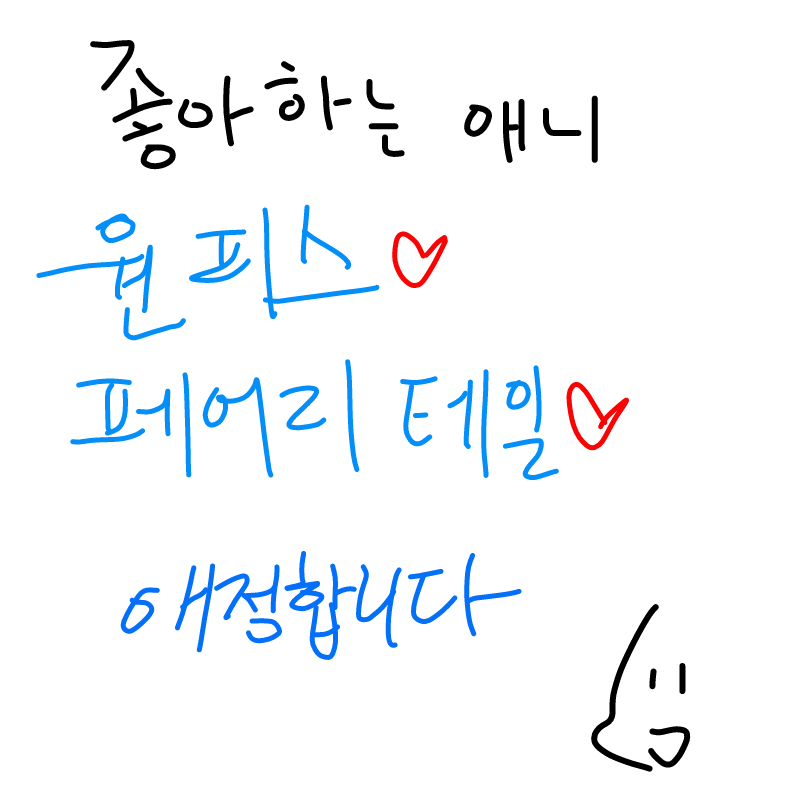 좋아하는 애니
원피스♡
페어리테일♡
애정합니다